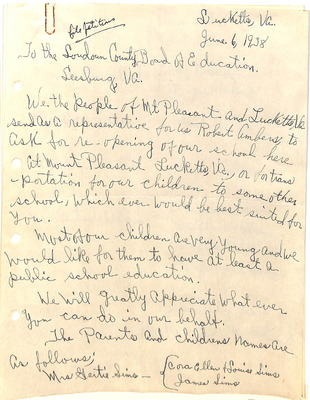 file petitions
Lucketts, Va.
June 6, 1938
To the Loudoun County Board of Education.
Leesburg, VA.
We the people of Mt Pleasant and Lucketts Va
send as a representative for us Robert Ambers, to
ask for re-opening of our school here
at Mount Pleasant Lucketts, Va., or for trans
-portation for our children to some other
school, which ever would be best suited for
you.
Most of our children are very young and we
would like for them to have at least a
public school education.
We will greatly appreciate what ever
you can do in our behalf.
The Parents and childrens Names are
as follows;
Mrs Gertie Sims - { Cora Allen + Louise Sims
James Sims